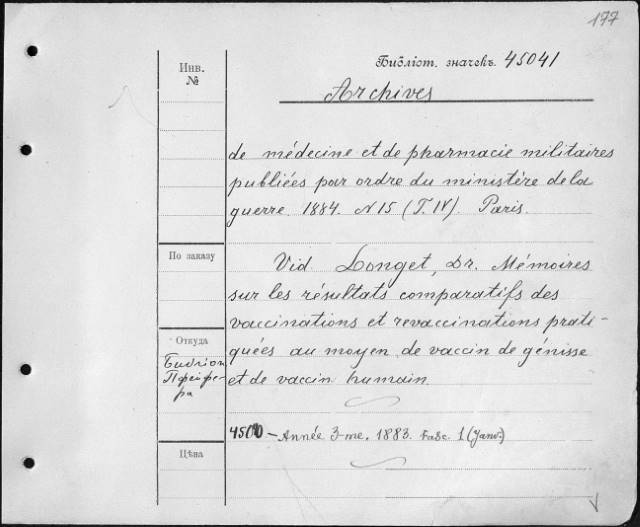 177
Инв.
№
Библіот. значекъ 45041
Archives
de médecine et de pharmacie militaires
publiées par ordre du ministère de la
guerre. 1884. N 15 (T. IV). Paris.
По заказу
Vid. Longet, Dr. Mémoires
sur les résultats comparatifs des
vaccinations et revaccinations prati-
quées au moyen de vaccin de génisse
et de vaccin humain.
Откуда
Библіот.
Пфейфе-
ра
– Année 3-me. 1883. Fasc. 1 (Janv.)
Цѣна